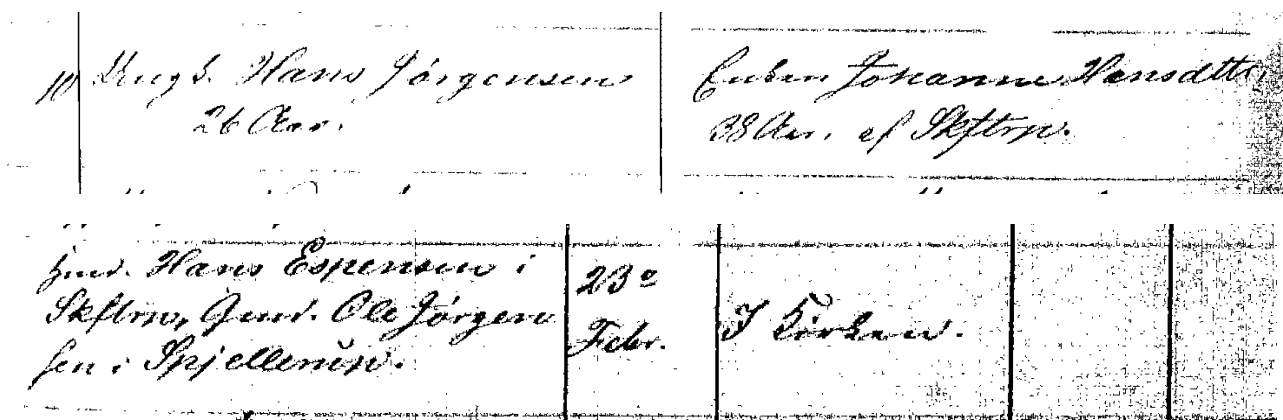 10
Ungk. Hans Jörgensen
26 Aar.
Enken Johanne Hansdttr,
38 Aar. af Skftrp.
Gmd. Hans Espensen i
Skftrp, Gmd. Ole Jörgen
sen i Spjellerup.
23º
Febr.
I Kirken.